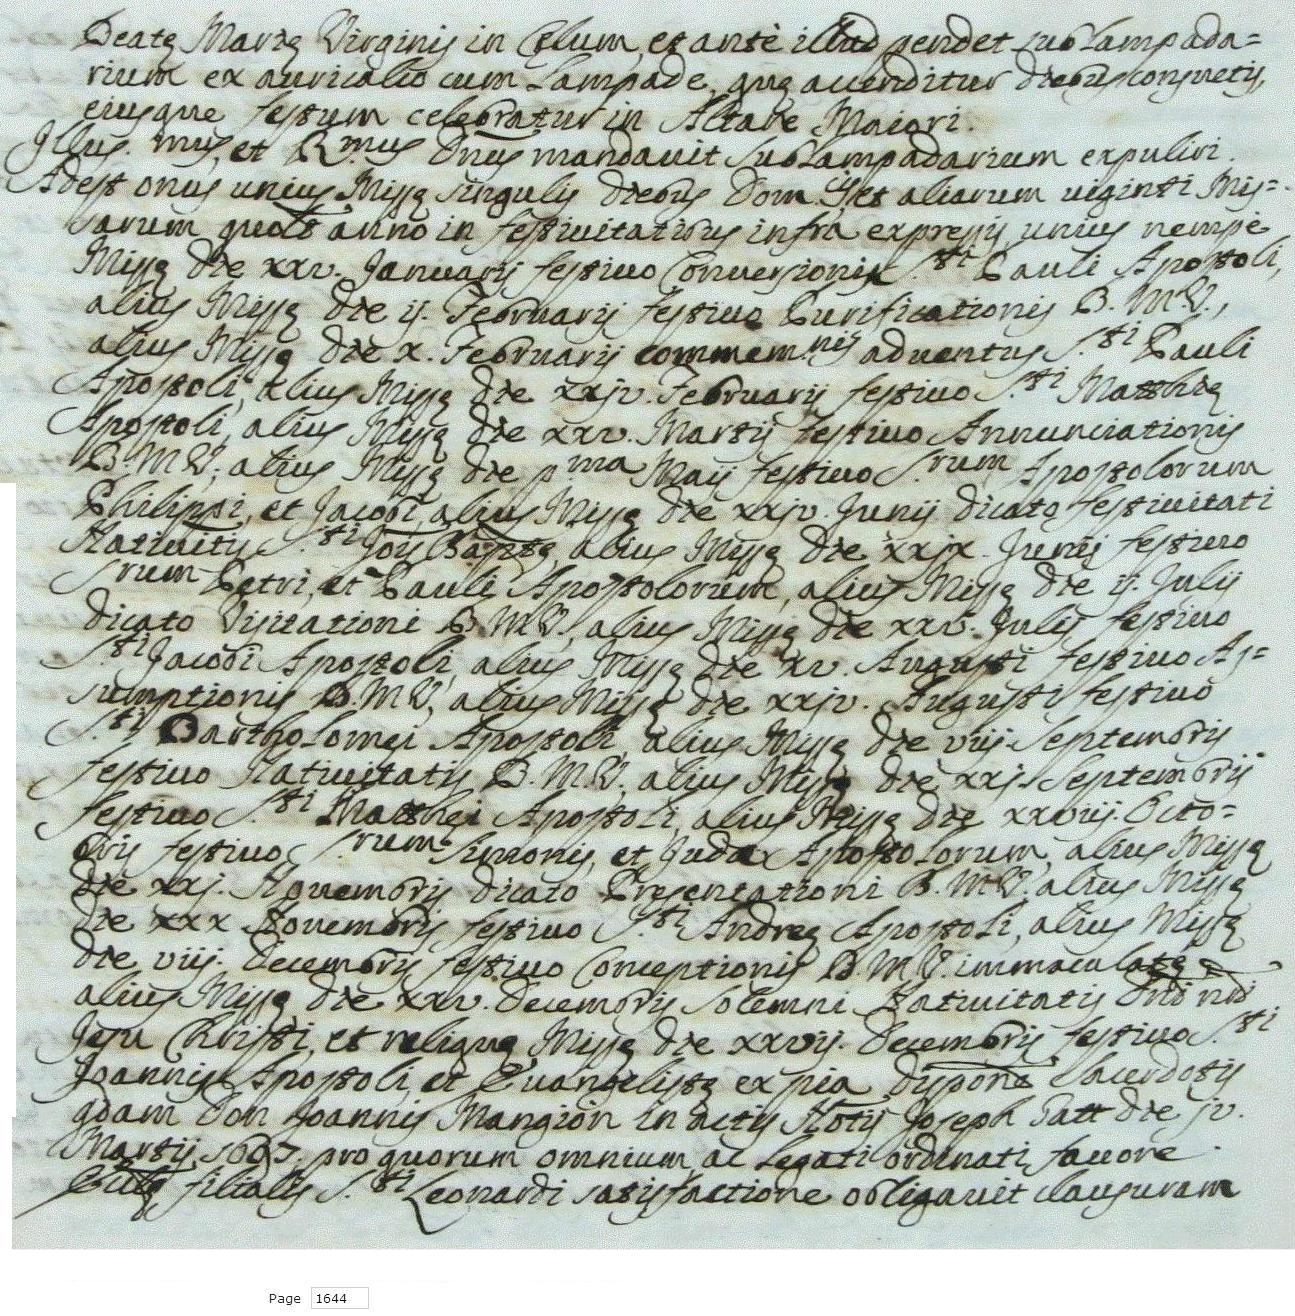 Beatę Marię Virginis in Cęlum, et ante illud pendet sublampada=
rium ex auricalco cum Lampade, quę accenditur diebus consuetis,
eiusque festum celebratur in Altare Maiori.
Illus.mus, et R.mus Dnus mandavit sublampadarium expoliri.
Adest onus unius Missę singulis diebus Dom. et aliarum viginti Mis=
sarum quolt anno in festivitatibus infra expressis, unius nempe
Missę die xxv. Januarij festivo Conversionis S.ti Pauli Apostoli,
alius Missę die ij. Februarij festivo Purificationis B.M.V.,
alius Missę die x. Februarij commem.nis adventus S.ti Pauli
Apostoli, alius Missę die xxjv. Februarij festivo S.ti Matthię
Apostoli, alius Missę die xxv. Martij festivo Annunciationis
B.M.V., alius Missę die p.ma Maij festivo S.rum Apostolorum
Philippi, et Jacobi, alius Missę die xxjv. Junij dicatę festivitati
Nativitis S.ti Jois Baptę, alius Missę die xxjx. Junij festivo
S.rum Petri, et Pauli Apostolorum, alius Missę die ij. Julij
dicato Visitationi B.M.V., alius Missę die xxv. Julij festivo
S.ti Jacobi Apostoli, alius Missę die xv. Augusti festivo As=
sumptionis B.M.V., alius Missę die xxjv. Augusti festivo
S.ti Bartholomei Apostoli, alius Missę die viij. Septembris
festivo Nativitatis B.M.V., alius Missę die xxj. Septembris
festivo S.ti Matthei Apostoli, alius Missę die xxviij. Octo=
bris festivo S.rum Simonis, et Judae Apostolorum, alius Missę
die xxj. Novembris dicato Presentationi B.M.V., alius Missę
die xxx Novembris festivo S.ti Andreę Apostoli, alius Missę
die viij. Decembris festivo Conceptionis B.M.V. immaculatę
alius Missę die xxv. Decembris solemni Nativitatis Dni nri
Jesu Christi, et reliquę Missę die xxvij. Decembris festivo S.ti
Joannis Apostoli, et Evangelistę ex pia dispone Sacerdotis
qdam Don Joannis Mangion in actis Notij Joseph Gatt die jv.
Martij pro quorum omnium ac legati ordinati favore
filialis S.ti Leonardi satisfactione obligavit clausuram
Page 1644